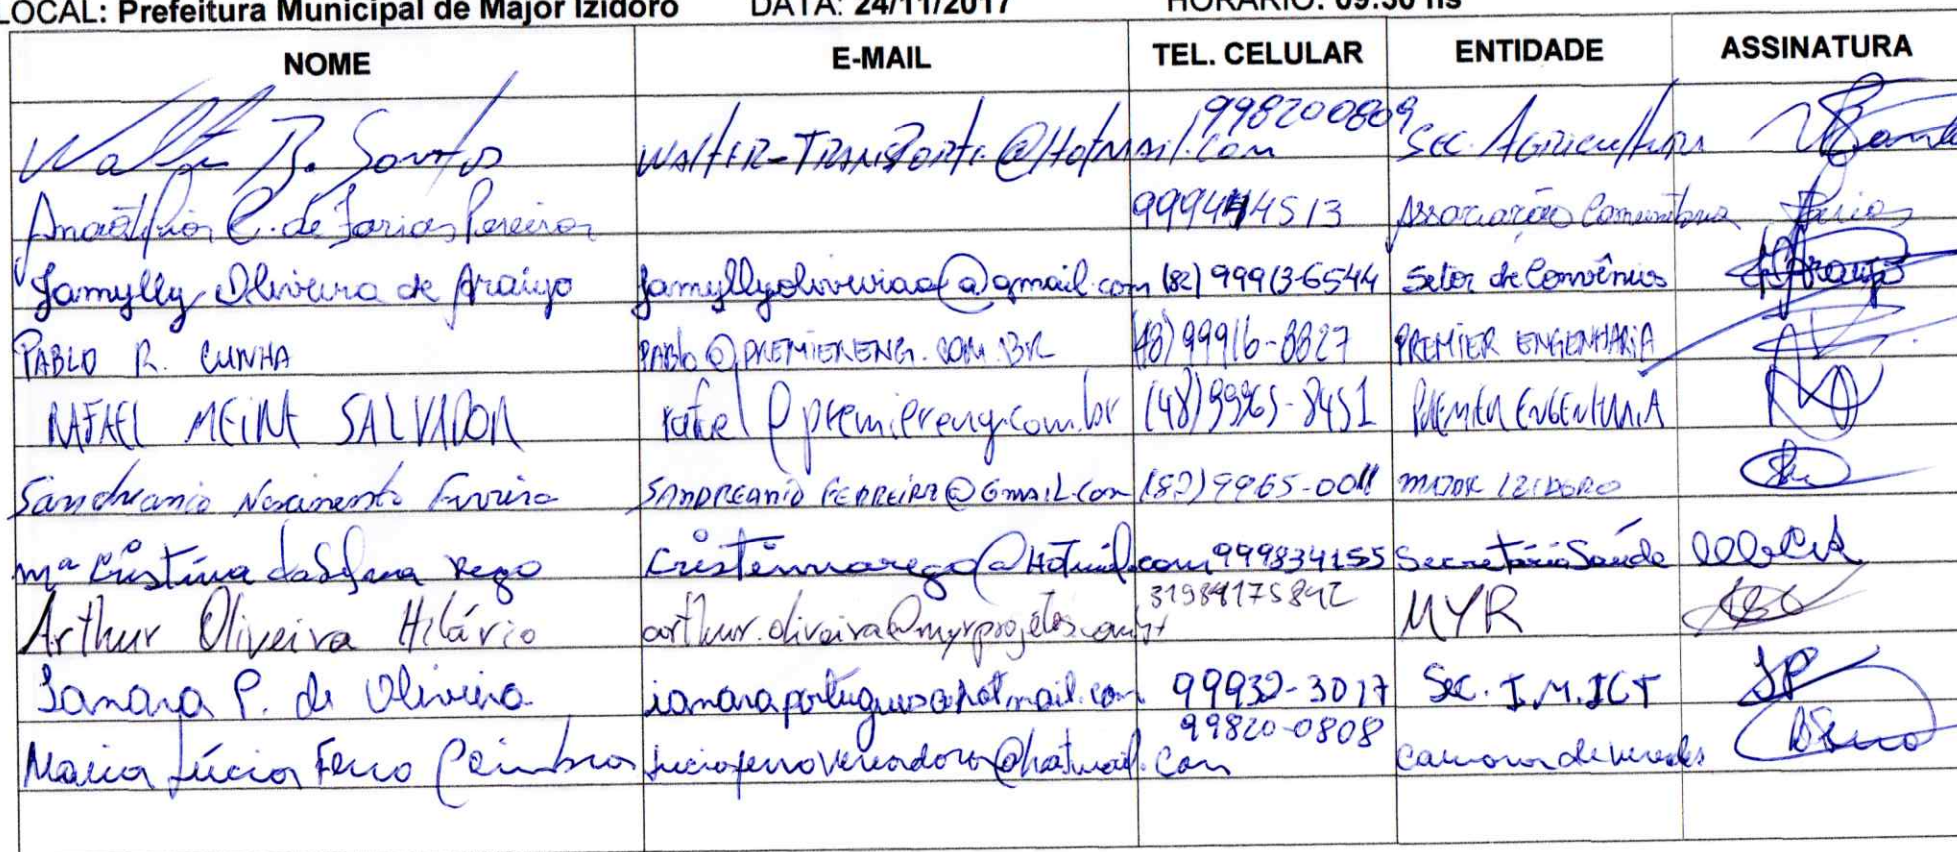 LOCAL: Prefeitura Municipal de Major Izidoro DATA: 24/11/2017 HORÁRIO: 09:30 hs
NOME E-MAIL TEL. CELULAR ENTIDADE ASSINATURA
Walter B. Santos WALTER-TRANSPORTE@Hotmail.com 998200809 Sec. Agricultura
C. de Farias Pereira 999444513 Associação Comunitária Farias
Jamylly Oliveira de Araújo jamyllyoliveiraa@gmail.com (82) 99913-6544 Setor de Convênios Araujo
PABLO R. CUNHA PABLO@PREMIERENG.COM.BR (48) 99916-8827 PREMIER ENGENHARIA
RAFAEL MEINE SALVADOR rafael@premiereng.com.br (48) 99965-8451 PREMIER ENGENHARIA
Sandreanio Nascimento Ferreira SANDREANIO FERREIRA@GMAIL.COM (82) 9965-0011 MAJOR IZIDORO
Mª Cristina da Rego @Hotmail.com 999834155 Secretária Saúde
Arthur Oliveira Hilário arthur.oliveira@myrprojetos.com 31984175842 MYR
Iamara P. de Oliveira iamaraportugues@hotmail.com 99932-3017 Sec. I.M.ICT JP
Maria Lúcia Ferro Coimbra luciaferrovereadora@hotmail.com 99820-0808 Camara de